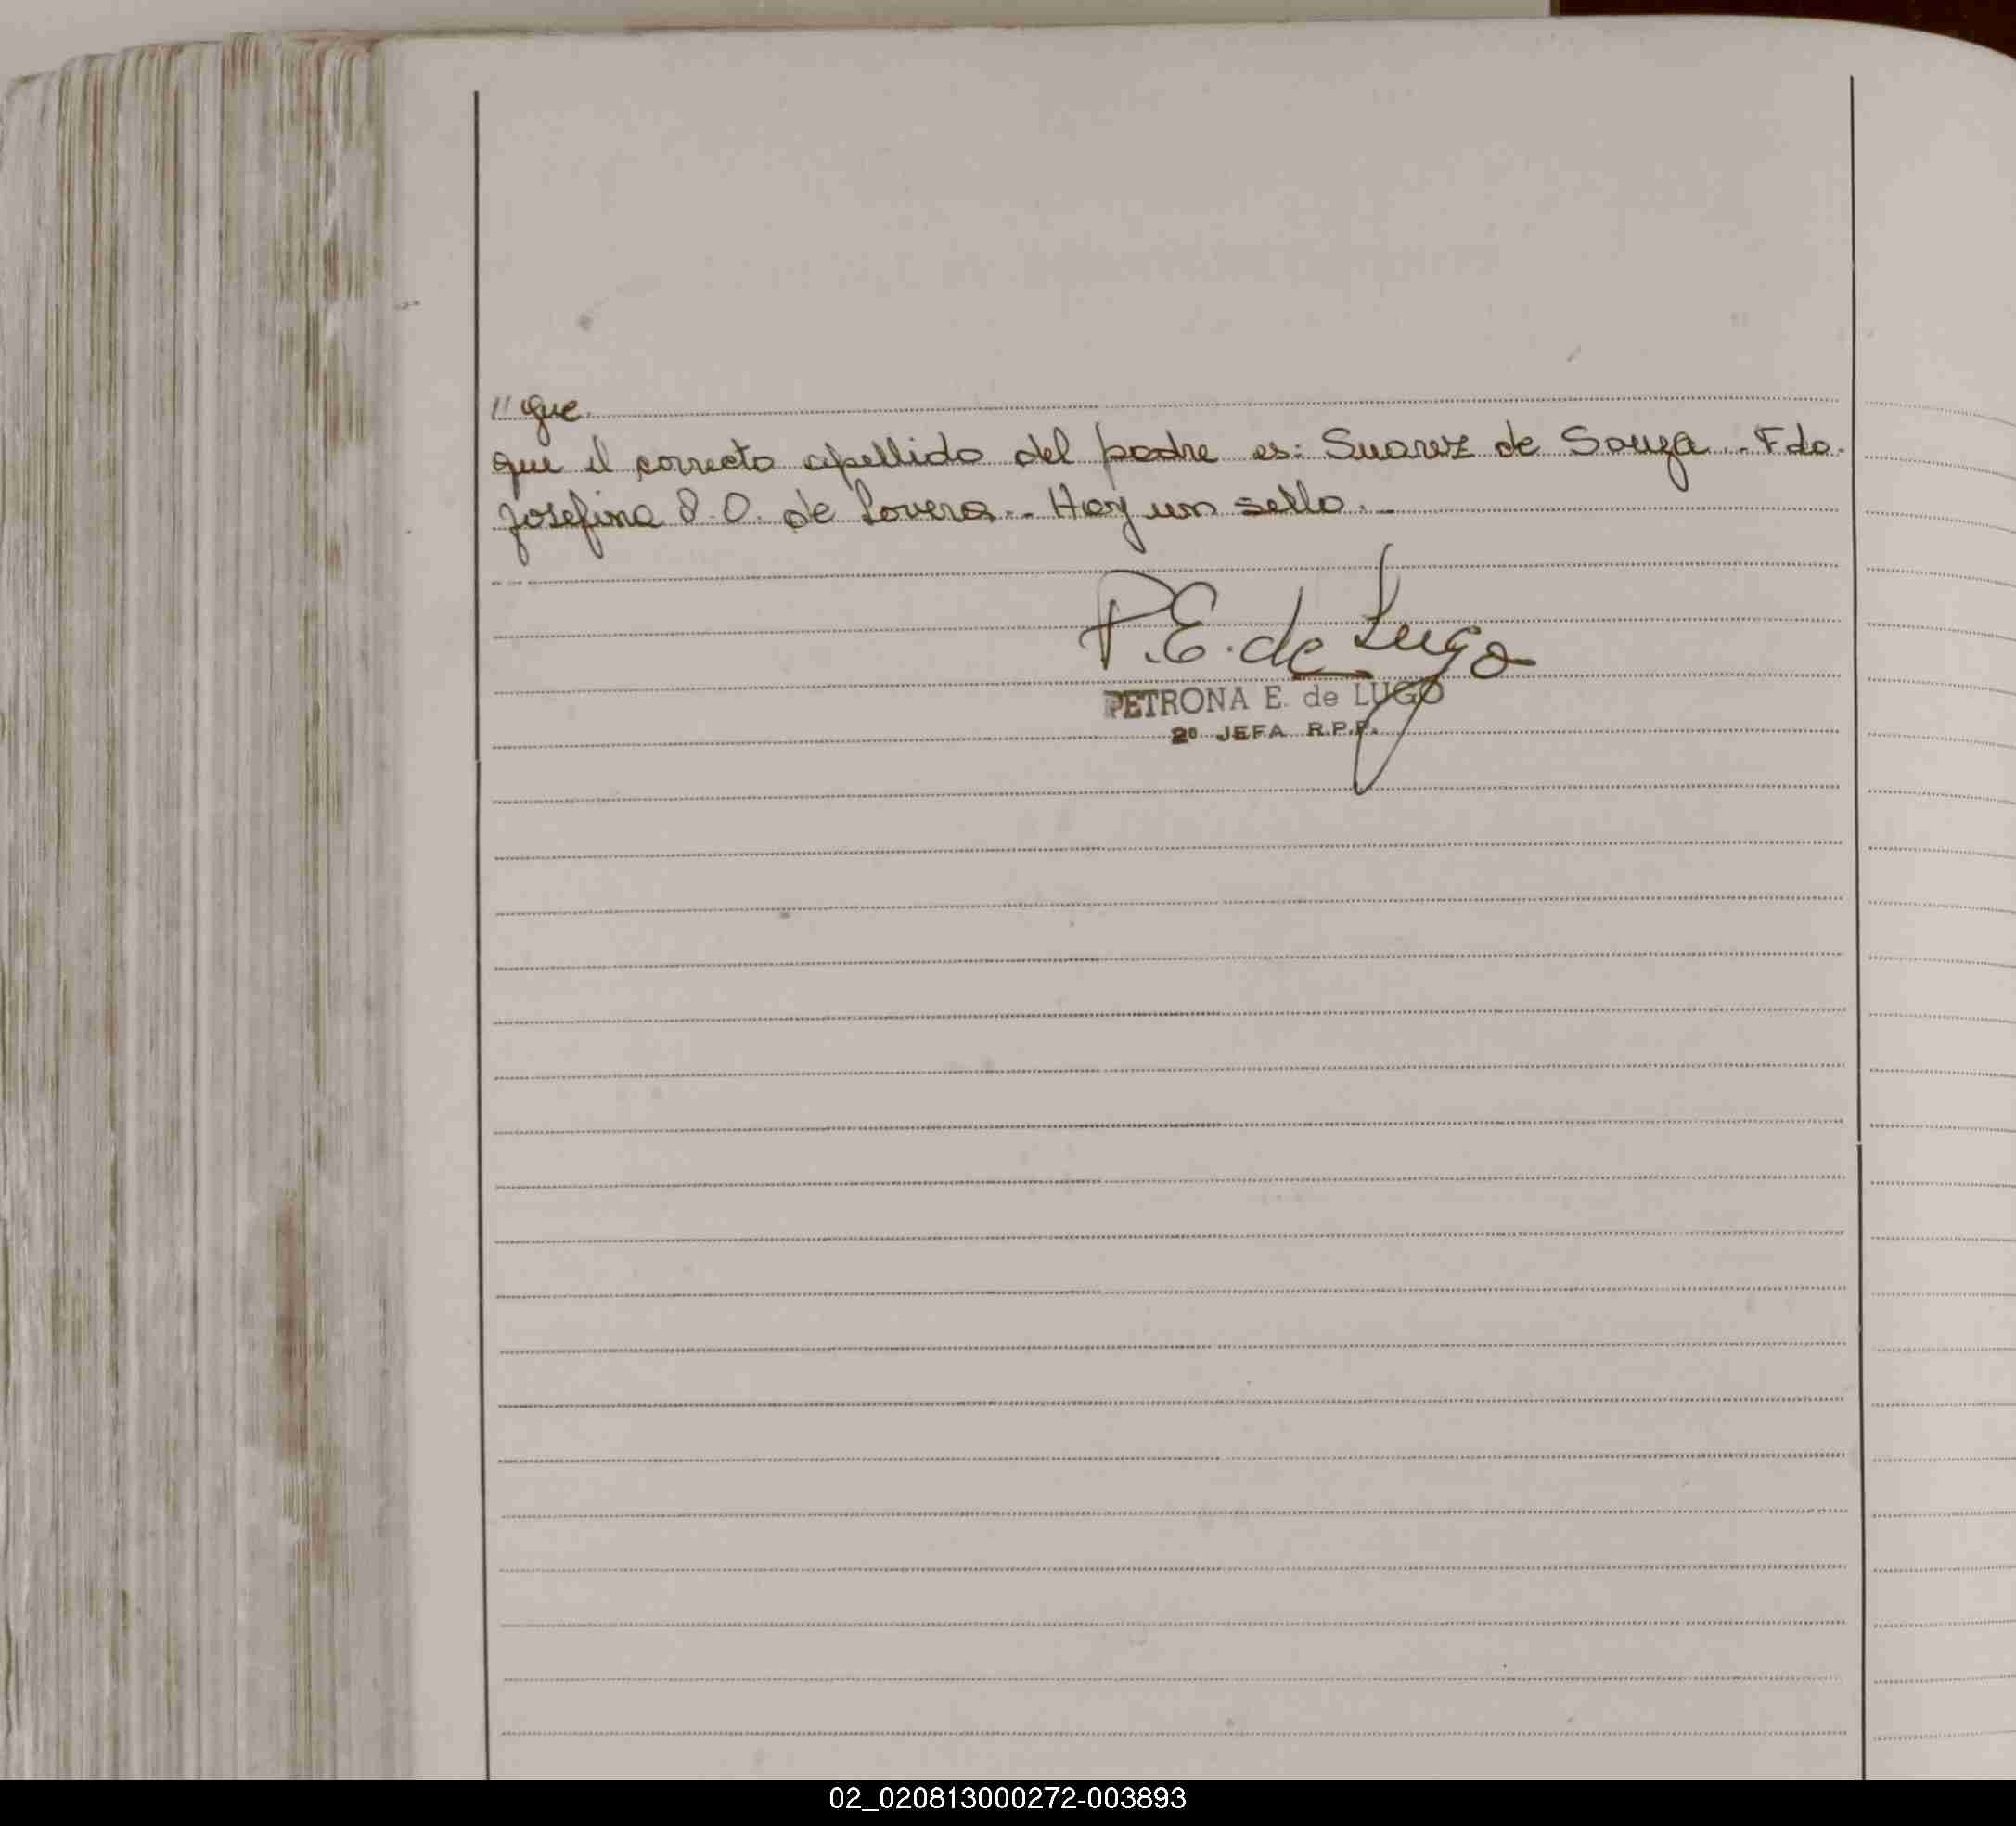 " que
que el correcto apellido del padre es: Suarez de Souza.- Fdo.
Josefina O. de Lovera.- Hay un sello.-
P.E. de Lugo
PETRONA E. de LUGO
2º JEFA R.P.P.
02_020813000272-003893